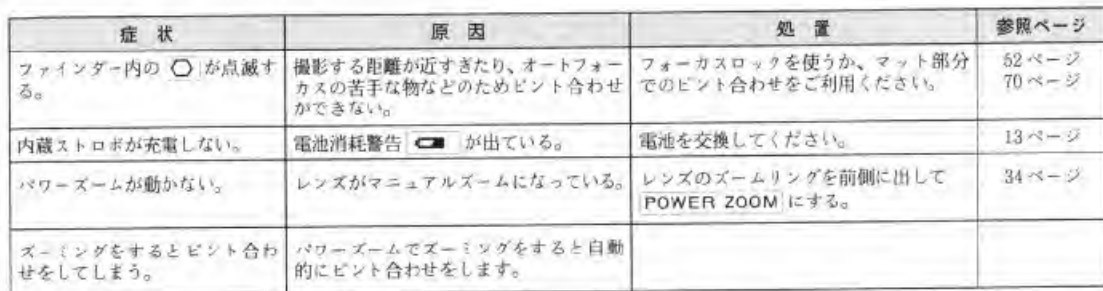 症 状 原 因 処 置 参照ページ
ファインダー内の が点滅す
る。
撮影する距離が近すぎたり、オートフォー
カスの苦手な物などのためピント合わせ
ができない。
フォーカスロックを使うか、マット部分
でのピント合わせをご利用ください。
52ページ
70ページ
内蔵ストロボが充電しない。
電池消耗警告 が出ている。
電池を交換してください。
13ページ
パワーズームが動かない。
レンズがマニュアルズームになっている。
レンズのズームリングを前側に出して
POWER ZOOM にする。
34ページ
ズーミングをするとピント合わ
せをしてしまう。
パワーズームでズーミングをすると自動
的にピント合わせをします。